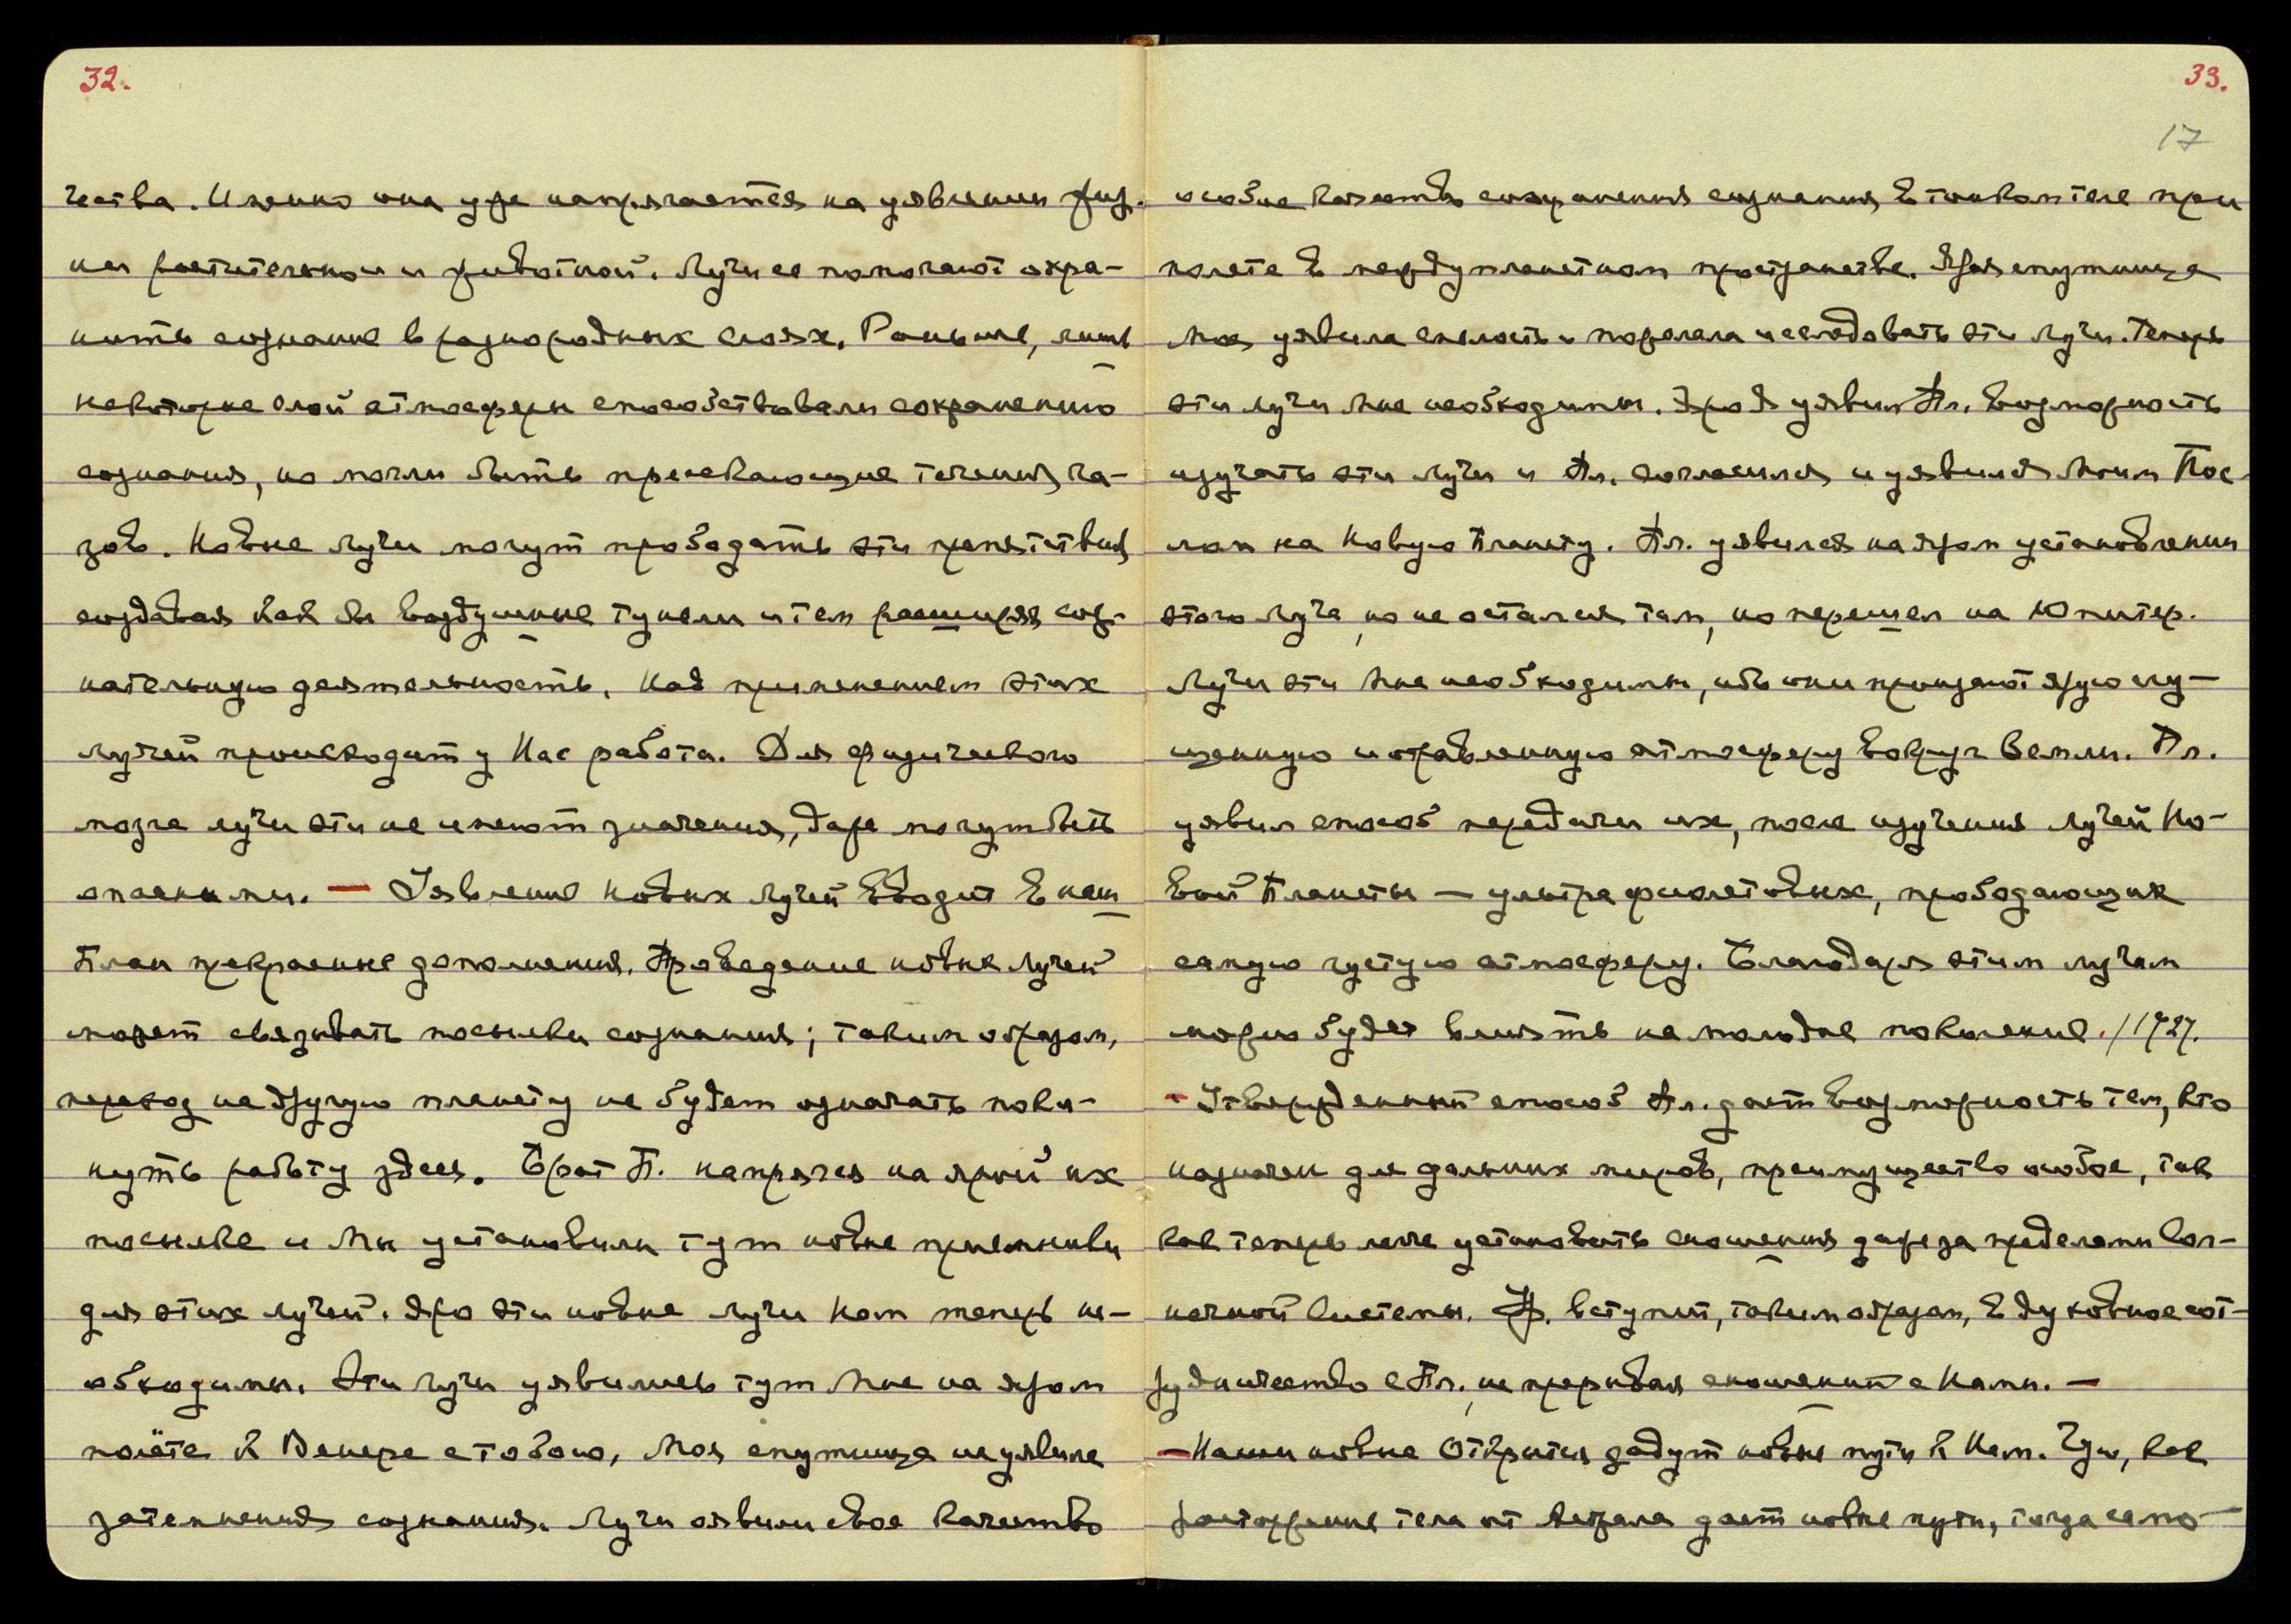 32.
чества. Именно она уже напрягается на уявлении жиз-
ни растительной и животной. Лучи ее помогают охра-
нить сознание в разнородных слоях. Раньше, лишь
некоторые слои атмосферы способствовали сохранению
сознания, но могли быть пресекающие течения га-
зов. Новые лучи могут прободать эти препятствия
создавая как бы воздушные тунели и тем расширяя соз-
нательную деятельность. Над применением этих
лучей происходит у Нас работа. Для физического
мозга лучи эти не имеют значения, даже могут быть
опасными. — Уявление новых лучей вводит в наш
План прекрасные дополнения. Проведение новых Лучей
может связывать посылки сознания; таким образом,
переход на другую планету не будет означать поки-
нуть работу здесь. Брат П. напрягся на ярой их
посылке и Мы установили тут новые приемники
для этих лучей. Яро эти новые лучи Нам теперь не-
обходимы. Эти лучи уявились тут Мне на яром
полёте к Венере с тобою, Моя спутница не уявила
затемнения сознания. Лучи оявили свое качество
33.
17
особое качество сохранения сознания в тонком теле при
полете в междупланетном пространстве. Ярая спутница
Моя уявила смелость и пожелала исследовать эти лучи. Теперь
эти лучи Мне необходимы. Яро Я уявил Пл. возможность
изучать эти лучи и Пл. согласился и уявился Моим Пос-
лом на Новую Планету. Пл. уявился на яром установлении
этого луча, но не остался там, но перешел на Юпитер.
Лучи эти Мне необходимы, ибо они пронзают ярую сгу-
щенную и отравленную атмосферу вокруг Земли. Пл.
уявил способ передачи их, после изучения лучей Но-
вой Планеты — ультрафиолетовых, прободающих
самую густую атмосферу. Благодаря этим лучам
можно будет влиять на молодое поколение. / 1924.
- Утвержденный способ Пл. дает возможность тем, кто
назначен для дальних миров, преимущество особое, так
как теперь легче установить сношения даже за пределами Сол-
нечной Системы. Ф. вступит, таким образом, в духовное сот-
рудничество с Пл., не прерывая сношений с Нами. —
— Наши новые Открытия дадут новые пути к Нам. Чую, как
расторжение тела от Астрала дает новые пути, тогда само-